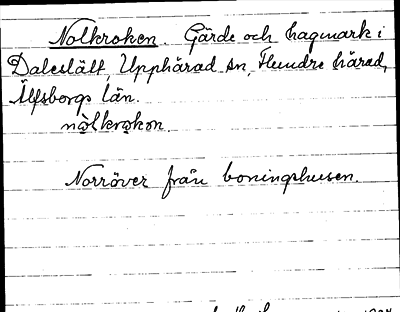 Nolkroken. Gärde och hagmark i
Daleslätt, Upphärad sn, Flundre härad,
Älfsborgs län.
nòlkrokon.
Norröver från boningshusen.